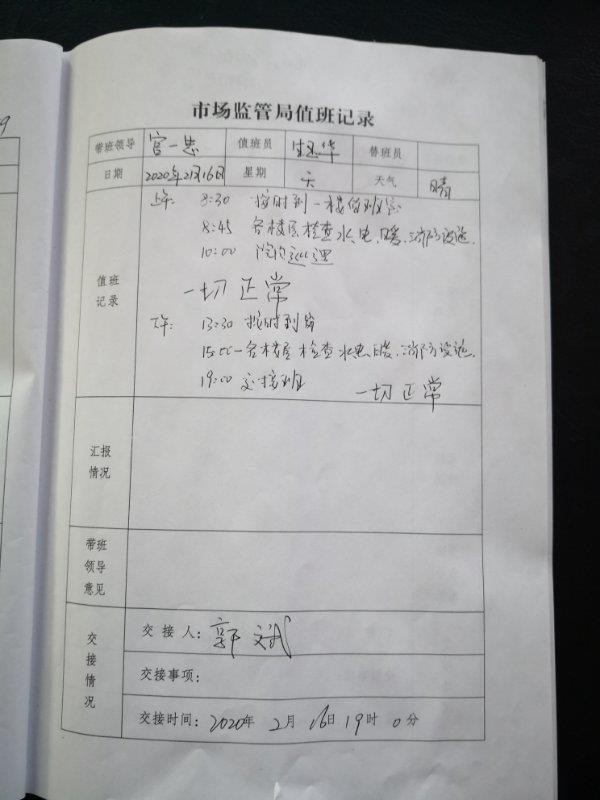 市场监管局值班记录
带班领导 宫一忠 值班员 华 替班员
日期 2020年2月16日 星期 天 天气 晴
值班记录
上午: 8:30 按时到一楼值班室
8:45 各楼层检查水、电、暖、消防设施.
10:00 院内巡逻
一切正常
下午: 13:30 按时到岗
15:00 各楼层检查水电暖、消防设施.
19:00 交接班 一切正常
汇报情况
带班领导意见
交接情况
交接人: 郭文斌
交接事项:
交接时间: 2020年 2月 16日 19时 0分